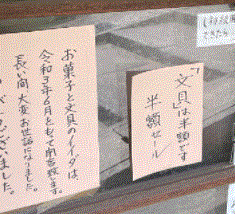 お菓子と文具のイイダは、
令和3年6月をもって閉店致します。
長い間、大変お世話になりました。
ございました。
「文具」は半額です
半額セール